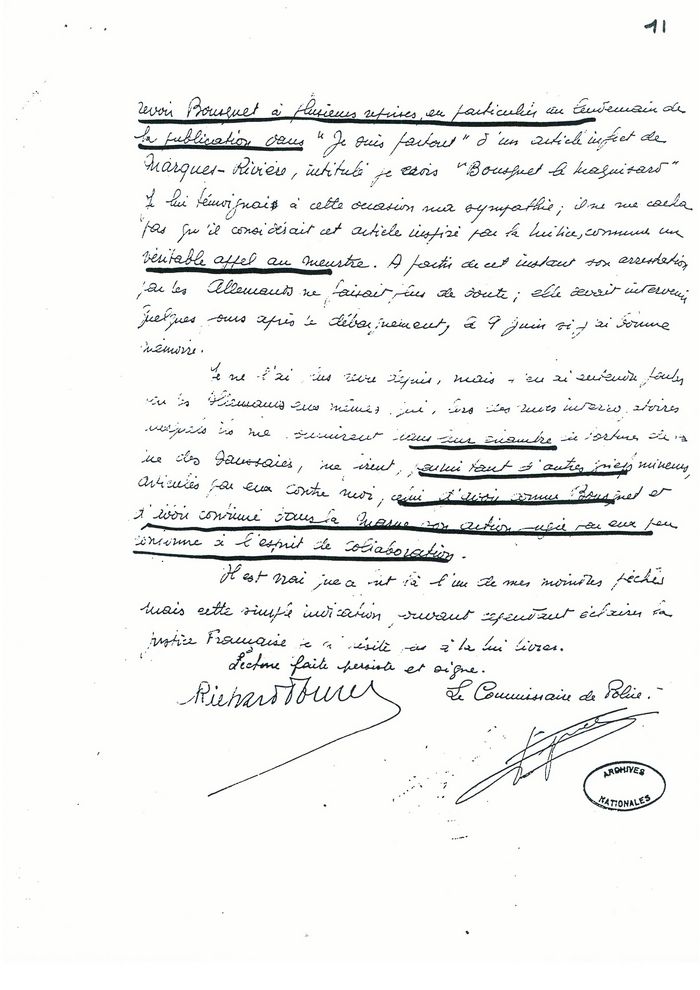 11
revoir Bousquet à plusieurs reprises, en particulier au lendemain de
la publication dans "Je suis partout" d'un article infect de
Marques-Rivière, intitulé je crois "Bousquet le maquisard"
Je lui témoignais à cette occasion ma sympathie; il ne me cacha
pas qu'il considérait cet article inspiré par la milice, comme un
véritable appel au meurtre. A partir de cet instant son arrestation
par les Allemands ne faisait plus de doute; elle devait intervenir
quelques jours après le débarquement, le 9 Juin si j'ai bonne
mémoire.
Je ne l'ai pas revu depuis, mais j'en ai entendu parler
par les Allemands eux mêmes, qui, lors des interrogatoires
auxquels ils me soumirent dans leur chambre de torture de la
rue des Saussaies, me firent, parmi tant d'autres griefs mineurs,
articulés par eux contre moi, celui d'avoir connu Bousquet et
d'avoir continué dans la Marne son action jugée par eux peu
conforme à l'esprit de collaboration.
Il est vrai que c'est là l'un de mes moindres péchés
mais cette simple indication, pouvant cependant éclairer la
justice Française je n'hésite pas à la lui livrer.
Lecture faite persiste et signe.
Le Commissaire de Police.
ARCHIVES
NATIONALES